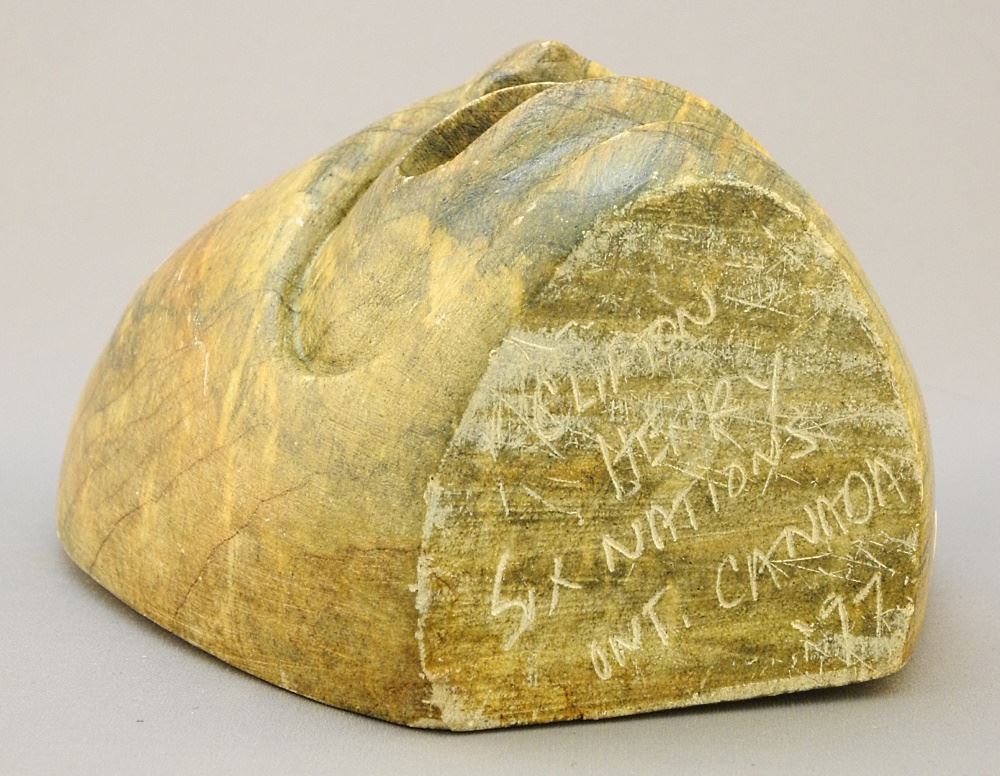 CLIFTON
HENRY
SIX NATIONS
ONT. CANADA
97